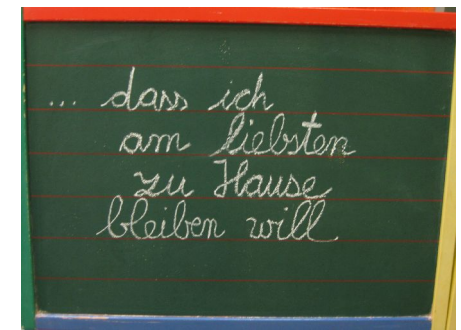 ... dass ich
am liebsten
zu Hause
bleiben will